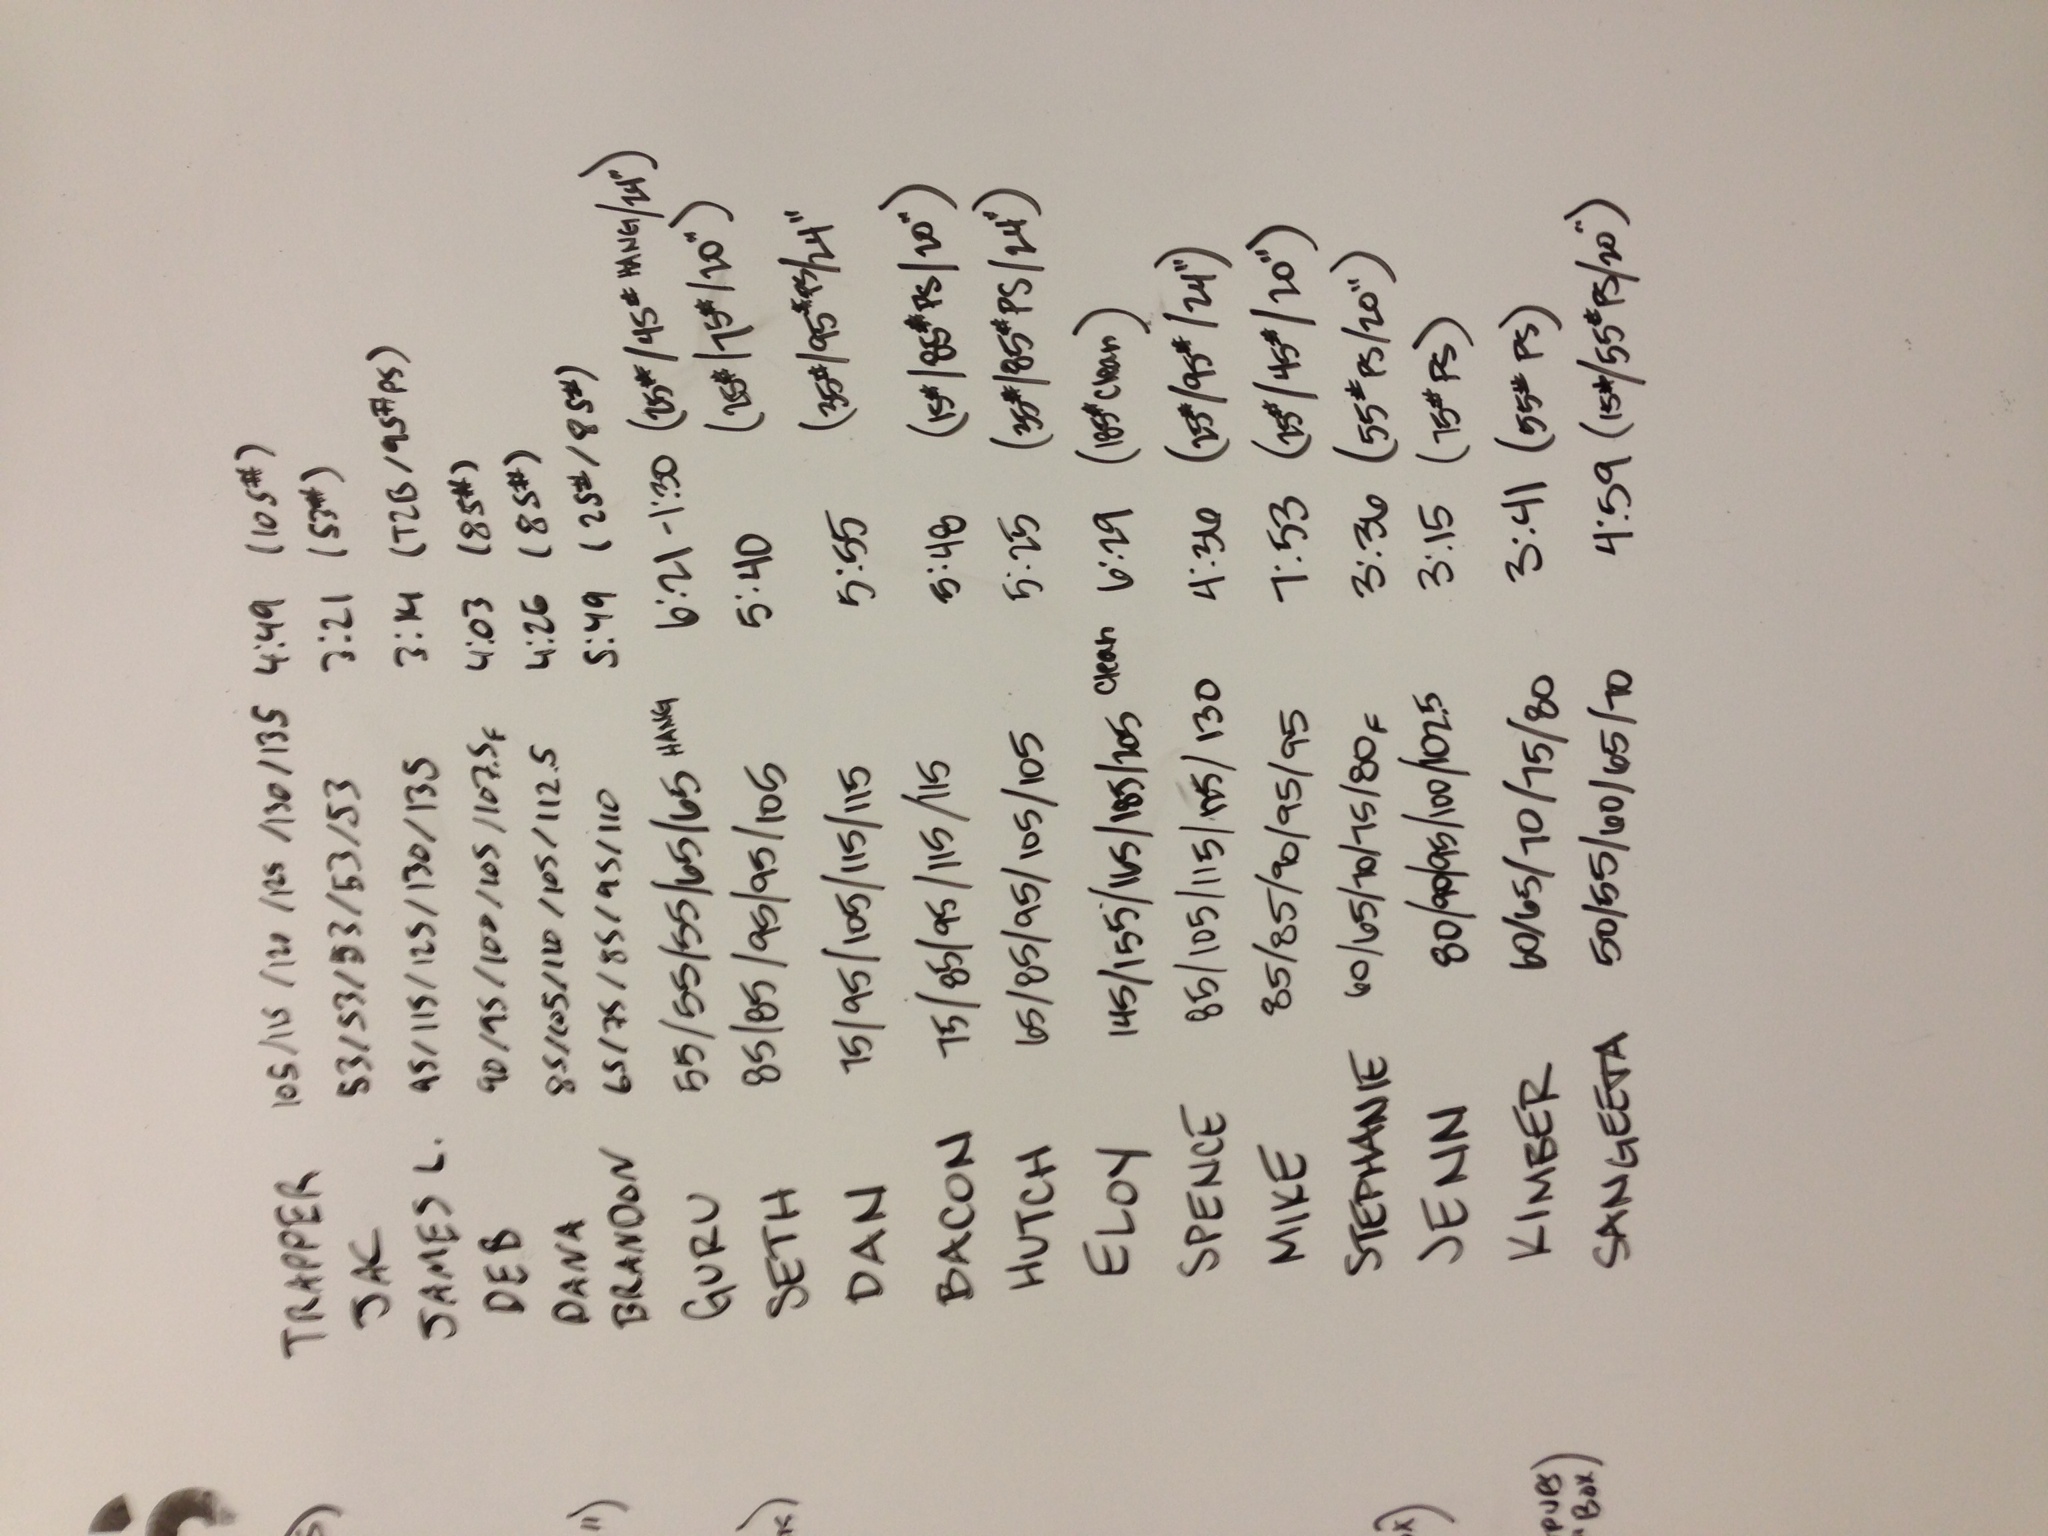 TRAPPER 105/115/121/125/130/135 4:44 (105#)
JAC 53/53/53/53/53/53 3:21 (53#)
JAMES L. 95/115/125/130/135 3:14 (T2B/95# PS)
DEB 90/95/100/105/107.5F 4:03 (85#)
DANA 85/105/110/105/112.5 4:26 (85#)
BRANDON 65/75/85/95/110 5:49 (25#/85#)
GURU 55/55/55/55/65/65 HANG 6:21-1:30 (25#/45# HANG/24")
SETH 85/85/90/95/95/105 5:40 (25#/75#/20")
DAN 75/95/105/115/115 5:55 (35#/95# PS/24"
BACON 75/85/95/115/115 5:48 (15#/85# PS/20")
HUTCH 65/85/95/105/105 5:25 (35#/85# PS/24")
ELOY 145/155/165/185/205 Clean 6:29 (185# Clean)
SPENCE 85/105/115/125/130 4:36 (25#/95#/24")
MIKE 85/85/90/95/95 7:53 (25#/45#/20")
STEPHANIE 60/65/70/75/80F 3:36 (55# PS/20")
JENN 80/90/95/100/102.5 3:15 (75# PS)
KIMBER 60/65/70/75/80 3:41 (55# PS)
SANGEETA 50/55/60/65/70 4:59 (15#/55# PS/20")
Box)